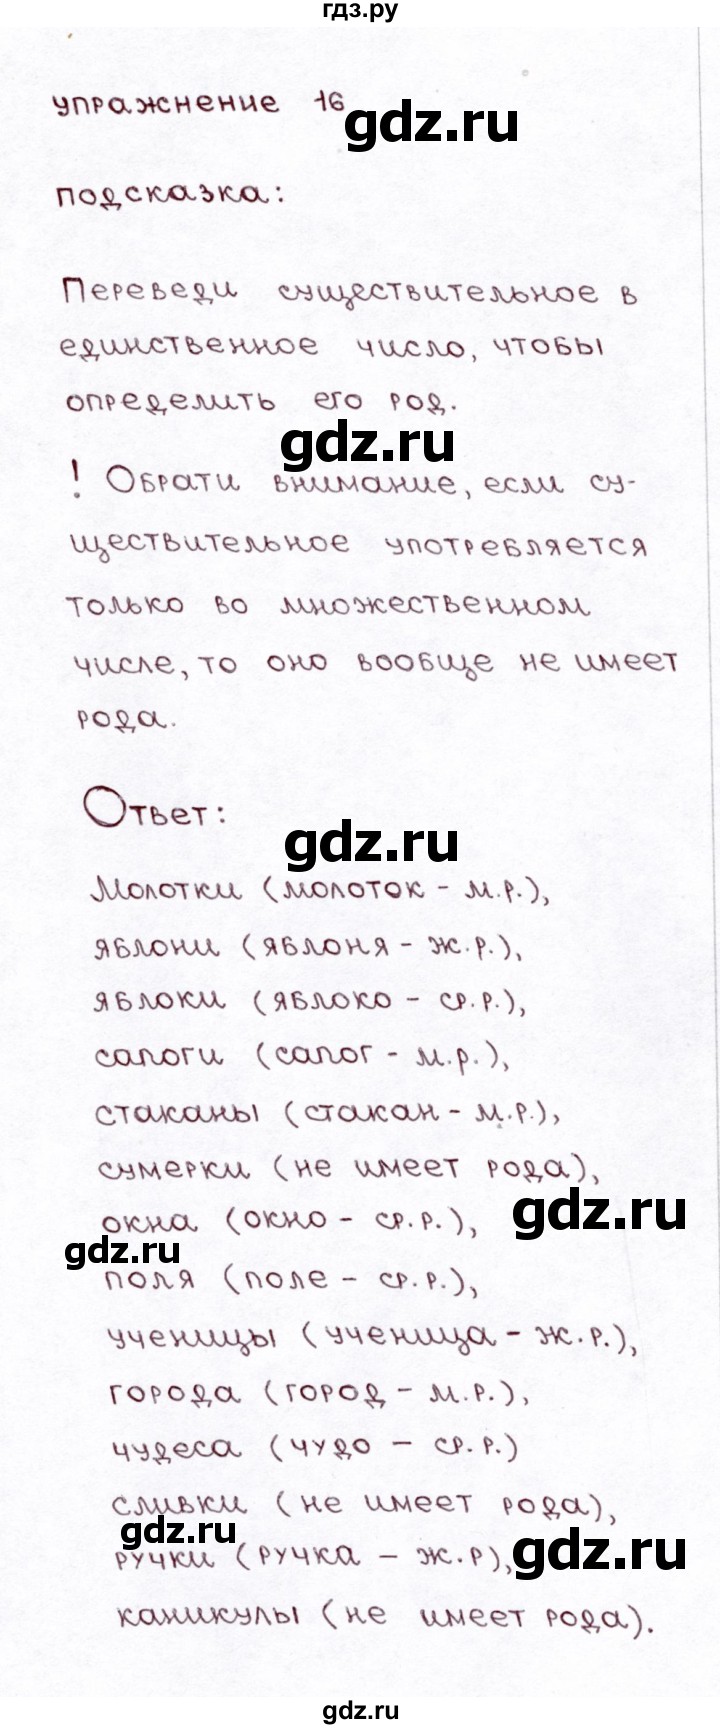 гдз.ру
упражнение 16
gdz.ru
подсказка:
Переведи существительное в
единственное число, чтобы
определить его род.
gdz.ru
! Обрати внимание, если су-
ществительное употребляется
только во множественном
числе, то оно вообще не имеет
рода.
Ответ:
gdz.ru
Молотки (молоток - м.р.),
яблони (яблоня - ж.р.),
яблоки (яблоко - ср.р.),
сапоги (сапог - м.р.),
стаканы (стакан - м.р.),
сумерки (не имеет рода),
gdz.ru
окна (окно - ср.р.),
gdz.ru
поля (поле - ср.р.),
ученицы (ученица - ж.р.),
города (город - м.р.),
чудеса (чудо - ср.р.)
сливки (не имеет рода),
gdz.ru
ручки (ручка - ж.р),
gdz.ru
каникулы (не имеет рода).
gdz.ru